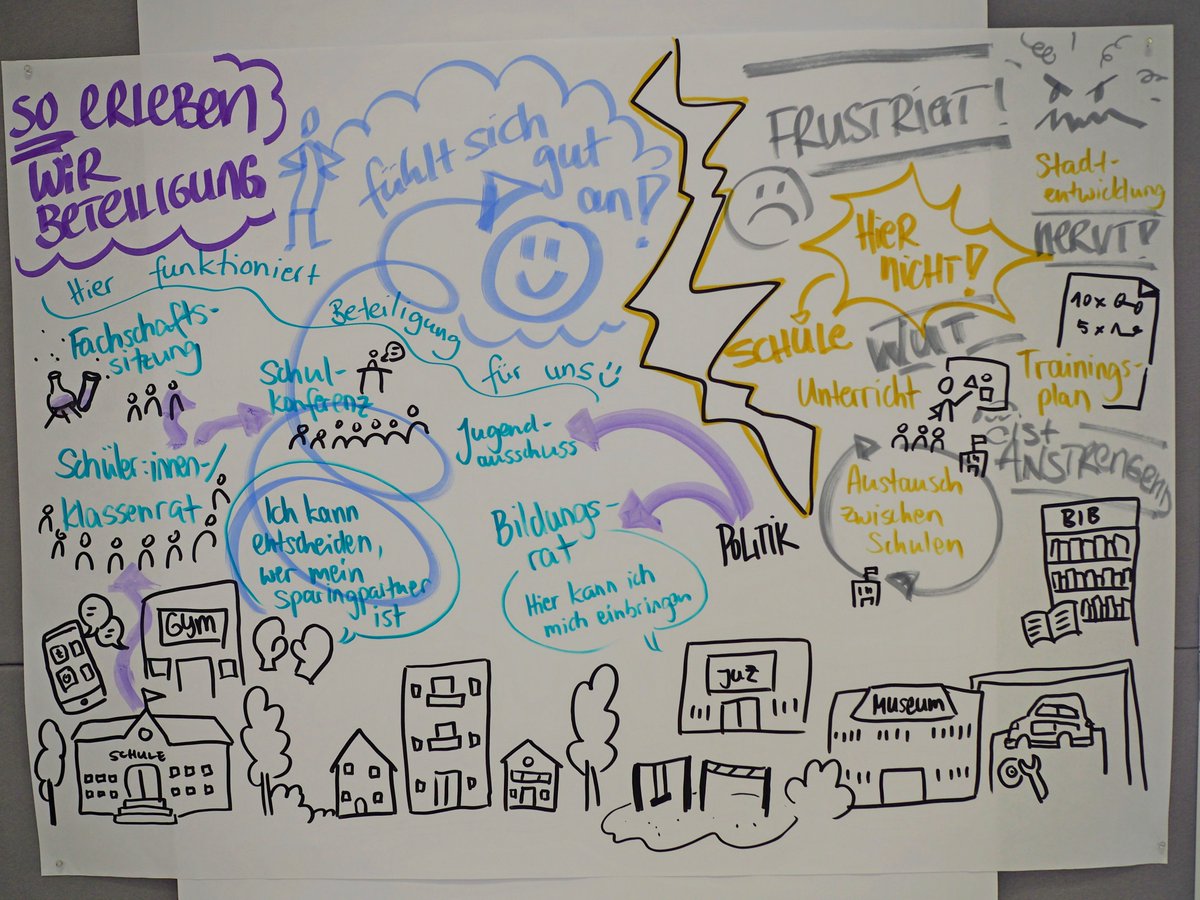 SO ERLEBEN
WIR
BETEILIGUNG
fühlt sich
gut
an!
Hier funktioniert
Beteiligung
für uns
Fachschafts-
sitzung
Schul-
konferenz
Jugend-
ausschuss
Schüler:innen-/
Klassenrat
Ich kann
entscheiden,
wer mein
Sparingpartner
ist
Bildungs-
rat
Hier kann ich
mich einbringen
POLITIK
FRUSTRIERT!
HIER
NICHT!
Stadt-
entwicklung
NERVT!
SCHULE
WUT
Unterricht
10x
5x
Trainings-
plan
ist
ANSTRENGEND
Austausch
zwischen
Schulen
BIB
GYM
SCHULE
JUZ
MUSEUM